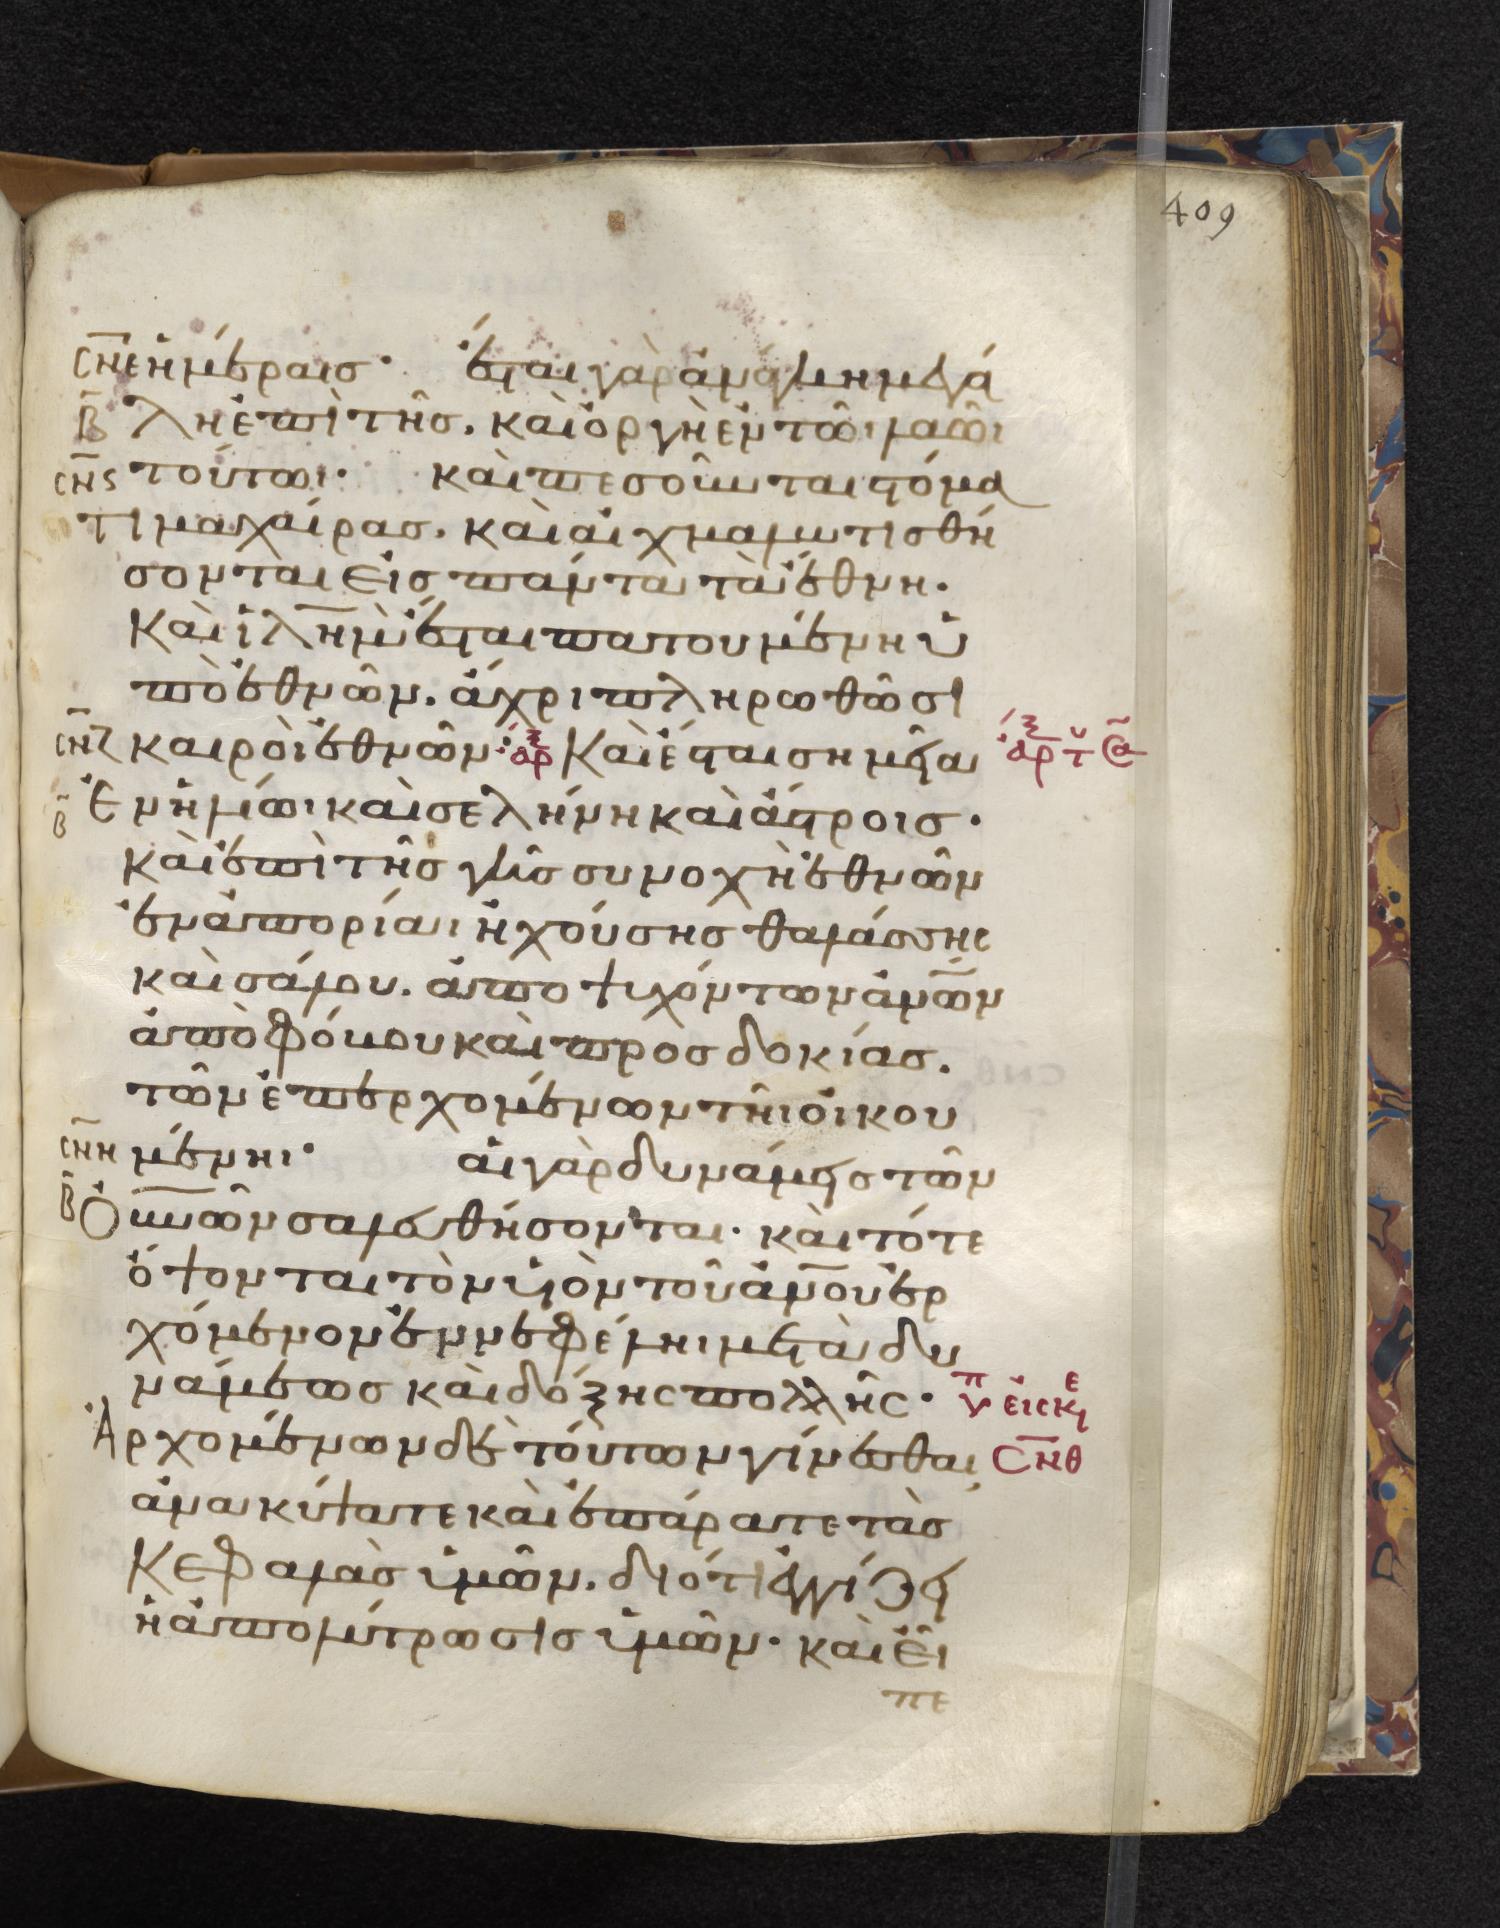 409
σ̅ν̅ε̅ ἡμέραισ· ἔσται γὰρ ἀνάγκη μεγά
β̅ λη ἐπὶ τῆσ. καὶ ὀργὴ ἐν τῶι λαῶι
σ̅ν̅ς̅ τούτωι· καὶ πεσοῦνται στόμα
τι μαχαίρασ. καὶ αἰχμαλωτισθή
σονται εἰσ πάντα τὰ ἔθνη.
Καὶ ἰ̅λ̅η̅μ̅ ἔσται πατουμένη ὑ
πὸ ἐθνῶν. ἄχρι πληρωθῶσι
σ̅ν̅ζ̅ καιροὶ ἐθνῶν· ἀρξ Καὶ ἔσται σημεῖα ἀρξ τ
β̅ Ἐν ἡλίωι καὶ σελήνη καὶ ἄστροισ·
καὶ ἐπὶ τῆσ γῆσ συνοχὴ ἐθνῶν
ἐν ἀπορίαι ἠχούσησ θαλάσσησ
καὶ σάλου. ἀποψυχόντων ἀ̅ν̅ω̅ν̅
ἀπὸ φόβου καὶ προσδοκίασ.
τῶν ἐπερχομένων τῆι οἰκου
σ̅ν̅η̅ μένηι· αἱ γὰρ δυνάμεισ τῶν
β̅ Ο̅υ̅ν̅ῶ̅ν̅ σαλευθήσονται· καὶ τότε
ὄψονται τὸν υἱὸν τοῦ ἀ̅ν̅ο̅υ̅ ἐρ
χόμενον ἐν νεφέληι μετὰ δυ
νάμεωσ καὶ δόξησ πολλῆσ·
Ἀρχομένων δὲ τούτων γίνεσθαι σ̅ν̅θ̅
ἀνακύψατε καὶ ἐπάρατε τὰσ
Κεφαλὰσ ὑμῶν. διότι ἐγγίζει
ἡ ἀπολύτρωσισ ὑμῶν· καὶ εἶ
πε